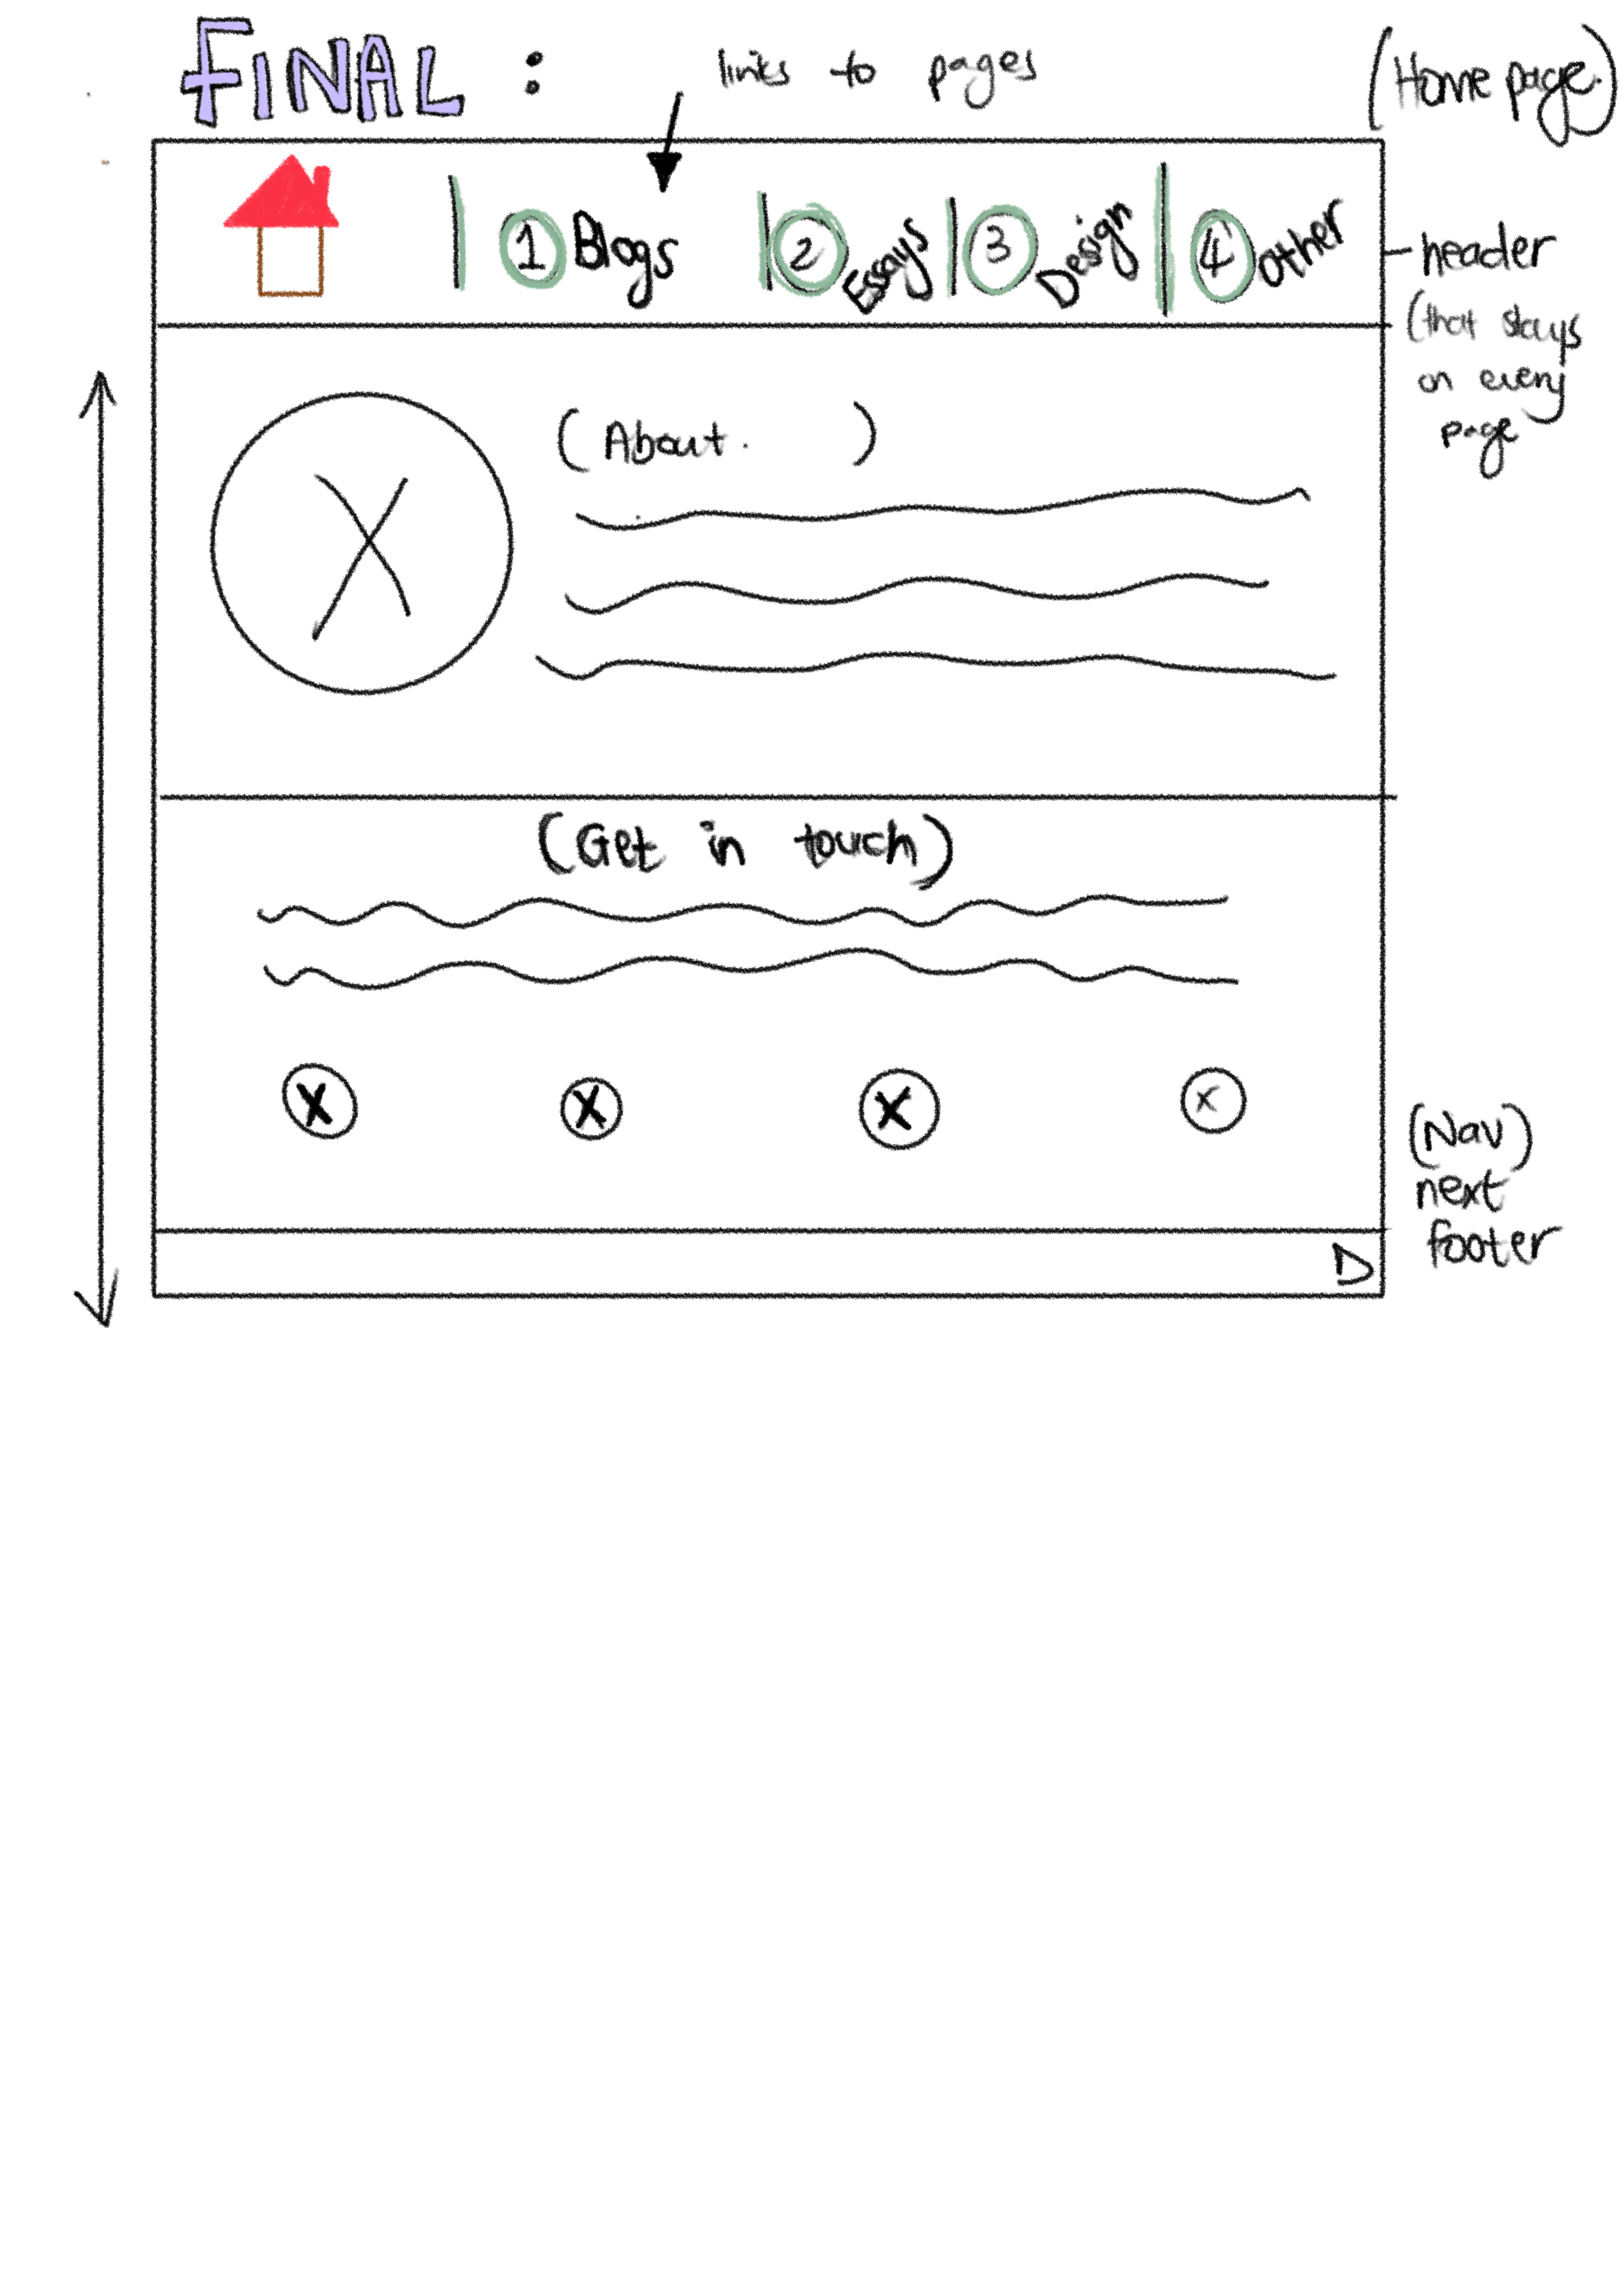 FINAL :
links to pages
(Home page.)
1 Blogs
2 Essays
3 Design
4 Other
header
(that stays
on every
page
(About. )
(Get in touch)
X X X X
(Nav)
next
footer